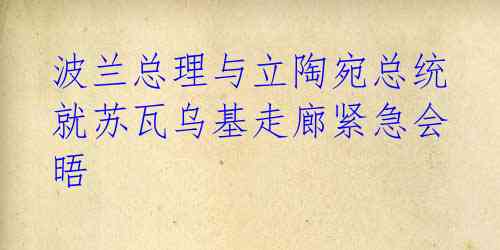 波兰总理与立陶宛总统
就苏瓦乌基走廊紧急会
晤